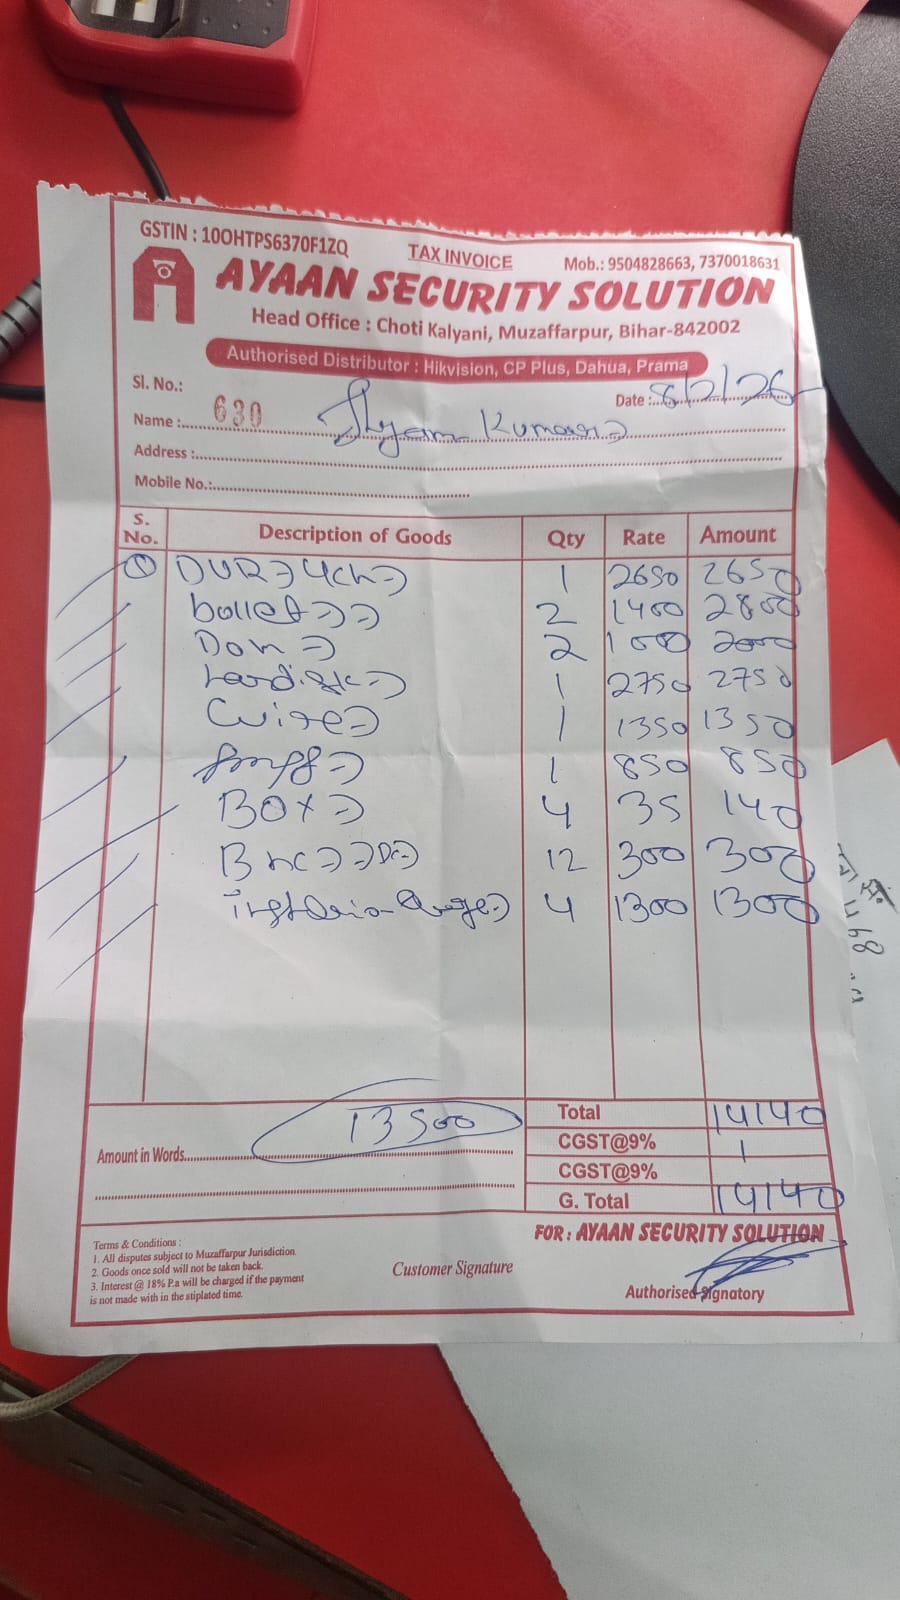 GSTIN : 10OHTPS6370F1ZQ TAX INVOICE Mob.: 9504828663, 7370018631
AYAAN SECURITY SOLUTION
Head Office : Choti Kalyani, Muzaffarpur, Bihar-842002
Authorised Distributor : Hikvision, CP Plus, Dahua, Prama
Sl. No.: 630 Date : 8/2/26
Name : Shyam Kumar
Address :
Mobile No.:
S. No. Description of Goods Qty Rate Amount
1 DVR 4ch 1 2650 2650
bollet 2 1400 2800
Dom 2 1000 2000
hardisk 1 2750 2750
Wire 1 1350 1350
1 850 850
BOX 4 35 140
Bnc DC 12 300 300
4 1300 1300
13500
Total 14140
Amount in Words
CGST@9%
CGST@9%
G. Total 14140
FOR : AYAAN SECURITY SOLUTION
Terms & Conditions :
1. All disputes subject to Muzaffarpur Jurisdiction.
2. Goods once sold will not be taken back.
3. Interest @ 18% P.a will be charged if the payment
is not made with in the stiplated time.
Customer Signature
Authorised Signatory